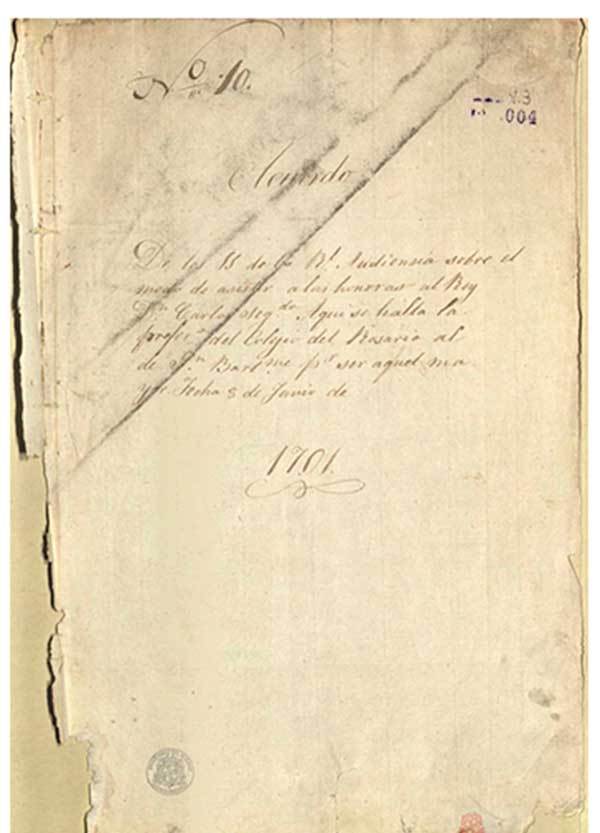 No. 10.
.004
Acuerdo
De los SS de la Rl. Audiensia sobre el
modo de asistir a las honoras al Rey
Dn. Carlos segdo. Aqui se halla la
del Colegio del Rosario al
de Sn. Barme. pr. ser aquel ma
yor. Fecha 8 de Junio de
1701.